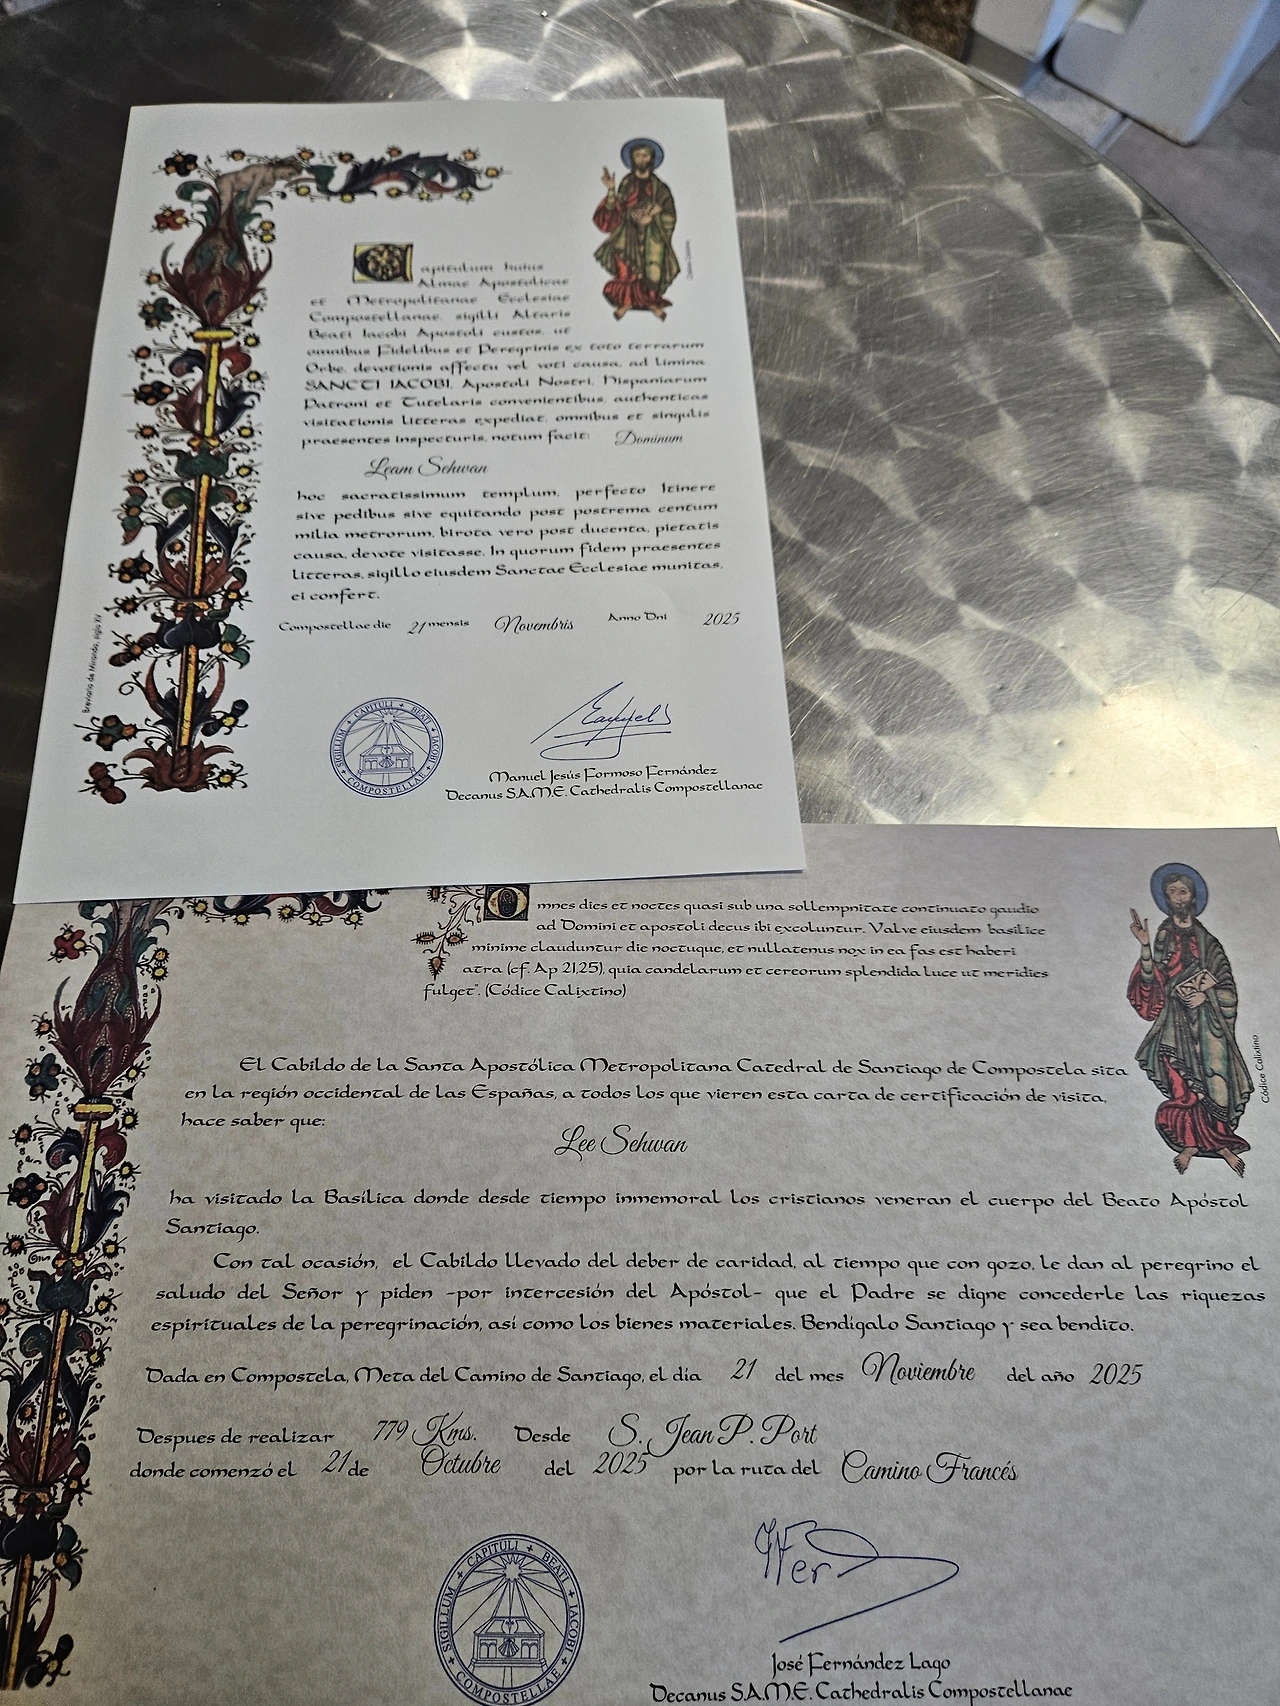 Capitulum huius
Almae Apostolicae
et Metropolitanae Ecclesiae
Compostellanae, sigilli Altaris
Beati Iacobi Apostoli custos, ut
omnibus Fidelibus et Peregrinis ex toto terrarum
Orbe, devotionis affectu vel voti causa, ad limina
SANCTI IACOBI, Apostoli Nostri, Hispaniarum
Patroni et Tutelaris convenientibus, authenticas
visitationis litteras expediat, omnibus et singulis
praesentes inspecturis, notum facit: Dominum
Leam Sehwan
hoc sacratissimum templum, perfecto Itinere
sive pedibus sive equitando post postrema centum
milia metrorum, birota vero post ducenta, pietatis
causa, devote visitasse. In quorum fidem praesentes
litteras, sigillo eiusdem Sanctae Ecclesiae munitas,
ei confert.
Compostellae die 21 mensis Novembris Anno Dni 2025
Breviario de Miranda, siglo XV
SIGILLUM + CAPITULI + BEATI + IACOBI + COMPOSTELLAE +
Manuel Jesús Formoso Fernández
Decanus S.A.M.E. Cathedralis Compostellanae
Omnes dies et noctes quasi sub una sollempnitate continuato gaudio
ad Domini et apostoli decus ibi excoluntur. Valve eiusdem basilice
minime clauduntur die noctuque, et nullatenus nox in ea fas est haberi
atra (cf. Ap 21,25), quia candelarum et cereorum splendida luce ut meridies
fulget". (Códice Calixtino)
Códice Calixtino
El Cabildo de la Santa Apostólica Metropolitana Catedral de Santiago de Compostela sita
en la región occidental de las Españas, a todos los que vieren esta carta de certificación de visita,
hace saber que:
Lee Sehwan
ha visitado la Basílica donde desde tiempo inmemoral los cristianos veneran el cuerpo del Beato Apóstol
Santiago.
Con tal ocasión, el Cabildo llevado del deber de caridad, al tiempo que con gozo, le dan al peregrino el
saludo del Señor y piden -por intercesión del Apóstol- que el Padre se digne concederle las riquezas
espirituales de la peregrinación, así como los bienes materiales. Bendígalo Santiago y sea bendito.
Dada en Compostela, Meta del Camino de Santiago, el día 21 del mes Noviembre del año 2025
Despues de realizar 779 Kms. Desde S. Jean P. Port
donde comenzó el 21 de Octubre del 2025 por la ruta del Camino Francés
SIGILLUM + CAPITULI + BEATI + IACOBI + COMPOSTELLAE
José Fernández Lago
Decanus S.A.M.E. Cathedralis Compostellanae